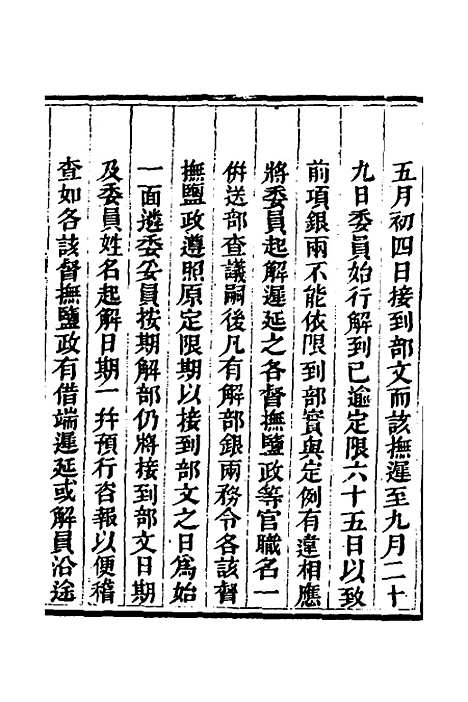 五月初四日接到部文而該撫遲至九月二十
九日委員始行解到已逾定限六十五日以致
前項銀兩不能依限到部實與定例有違相應
將委員起解遲延之各督撫鹽政等官職名一
併送部查議嗣後凡有解部銀兩務令各該督
撫鹽政遵照原定限期以接到部文之日爲始
一面遴委妥員按期解部仍將接到部文日期
及委員姓名起解日期一幷預行咨報以便稽
查如各該督撫鹽政有借端遲延或解員沿途